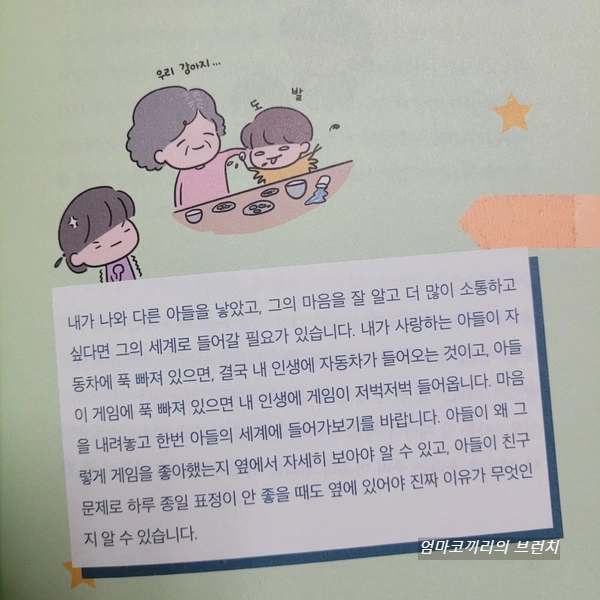 우리 강아지...
도 발
내가 나와 다른 아들을 낳았고, 그의 마음을 잘 알고 더 많이 소통하고
싶다면 그의 세계로 들어갈 필요가 있습니다. 내가 사랑하는 아들이 자
동차에 푹 빠져 있으면, 결국 내 인생에 자동차가 들어오는 것이고, 아들
이 게임에 푹 빠져 있으면 내 인생에 게임이 저벅저벅 들어옵니다. 마음
을 내려놓고 한번 아들의 세계에 들어가보기를 바랍니다. 아들이 왜 그
렇게 게임을 좋아했는지 옆에서 자세히 보아야 알 수 있고, 아들이 친구
문제로 하루 종일 표정이 안 좋을 때도 옆에 있어야 진짜 이유가 무엇인
지 알 수 있습니다.
엄마코끼리의 브런치